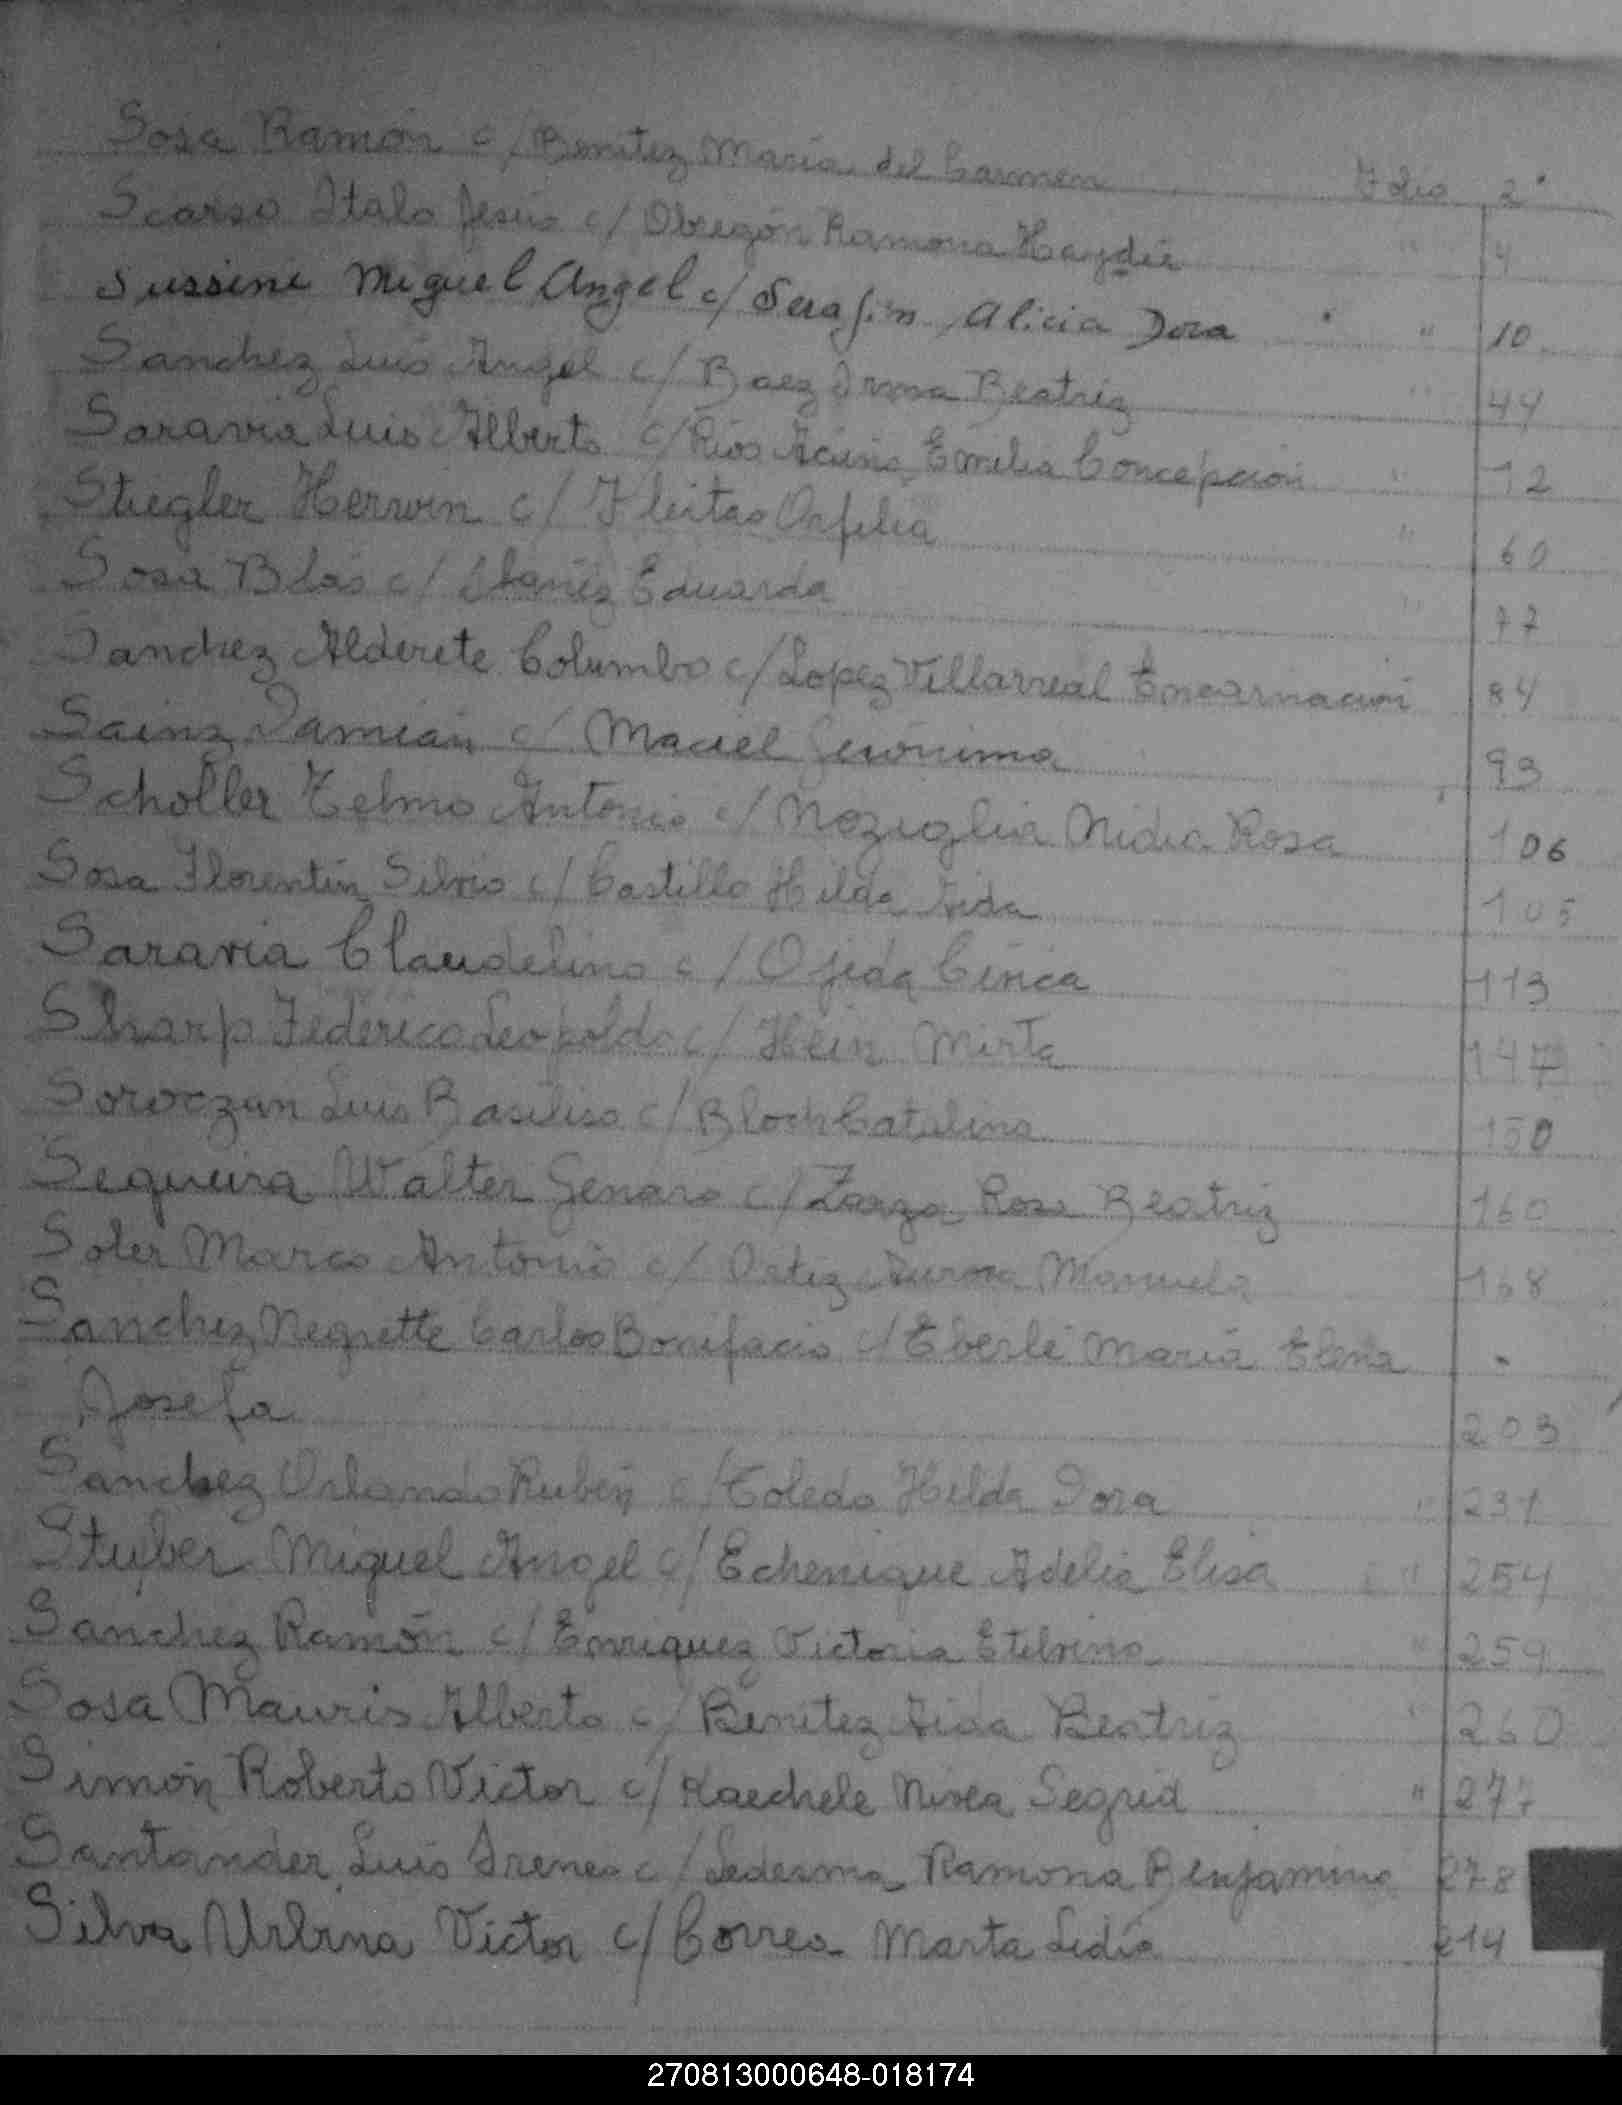 Sosa Ramón c/ Benitez Maria del Carmen Folio 2°
Scarso Italo Jesús c/ Obregón Ramona Haydée " 4
Sussini Miguel Angel c/ Serafin Alicia Dora " 10
Sanchez Luis Angel c/ Baez Irma Beatriz " 44
Saravia Luis Alberto c/ Rios Acuña Emilia Concepción " 12
Stiegler Herwin c/ Fleitas Orfilia " 60
Sosa Blas c/ Ibañez Eduarda " 77
Sanchez Alderete Columbo c/ Lopez Villarreal Encarnación 84
Sainz Damián c/ Maciel Gerónima 93
Scholler Telmo Antonio c/ Noziglia Nidia Rosa 106
Sosa Florentín Silvio c/ Castillo Hilda Aida 105
Saravia Claudelino c/ Ojeda Cirica 113
Sharp Federico Leopoldo c/ Hein Mirta 147
Soroczun Luis Basiliso c/ Bloch Catalina 150
Sequeira Walter Genaro c/ Zarza Rosa Beatriz 160
Soler Marco Antonio c/ Ortiz Aurora Manuela 168
Sanchez Negrette Carlos Bonifacio c/ Eberlé Maria Elena
Josefa 203
Sanchez Orlando Rubén c/ Toledo Hilda Dora " 231
Styber Miguel Angel c/ Echenique Adelia Elisa " 254
Sanchez Ramón c/ Enriquez Victoria Etelvina " 259
Sosa Mauris Alberto c/ Benitez Aida Beatriz " 260
Simón Roberto Victor c/ Kaechele Nivea Segrid " 277
Santander Luis Ireneo c/ Ledesma Ramona Benjamina 278
Silva Urbina Victor c/ Correa Marta Lidia 214
270813000648-018174